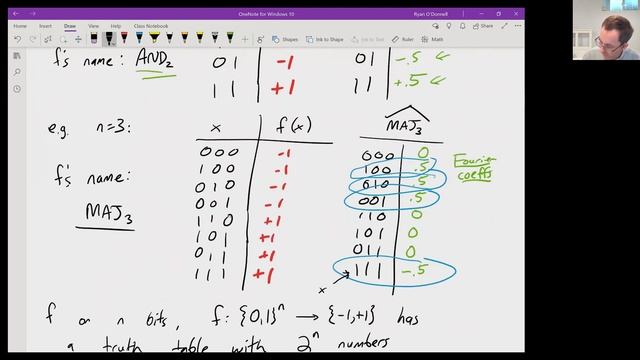 OneNote for Windows 10
Ryan O'Donnell
Home Insert Draw View Help Class Notebook
Shapes Ink to Shape Ink to Text Math
f's name: AND₂
01 -1
11 +1
01 -.5
11 +.5
e.g. n=3:
x f(x)
000 -1
100 -1
010 -1
001 -1
110 +1
101 +1
011 +1
111 +1
f's name:
MAJ₃
MAJ₃
000 0
100 .5
010 .5
001 .5
110 0
101 0
011 0
111 -.5
Fourier
coeffs
x
f on n bits, f: {0,1}ⁿ → {-1,+1} has
a truth table with 2ⁿ numbers